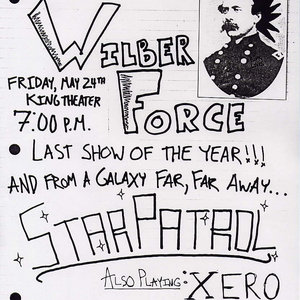 WILBER
FORCE
FRIDAY, MAY 24TH
KING THEATER
7:00 P.M.
LAST SHOW OF THE YEAR!!!
AND FROM A GALAXY FAR, FAR AWAY...
STARPATROL
ALSO PLAYING: XERO